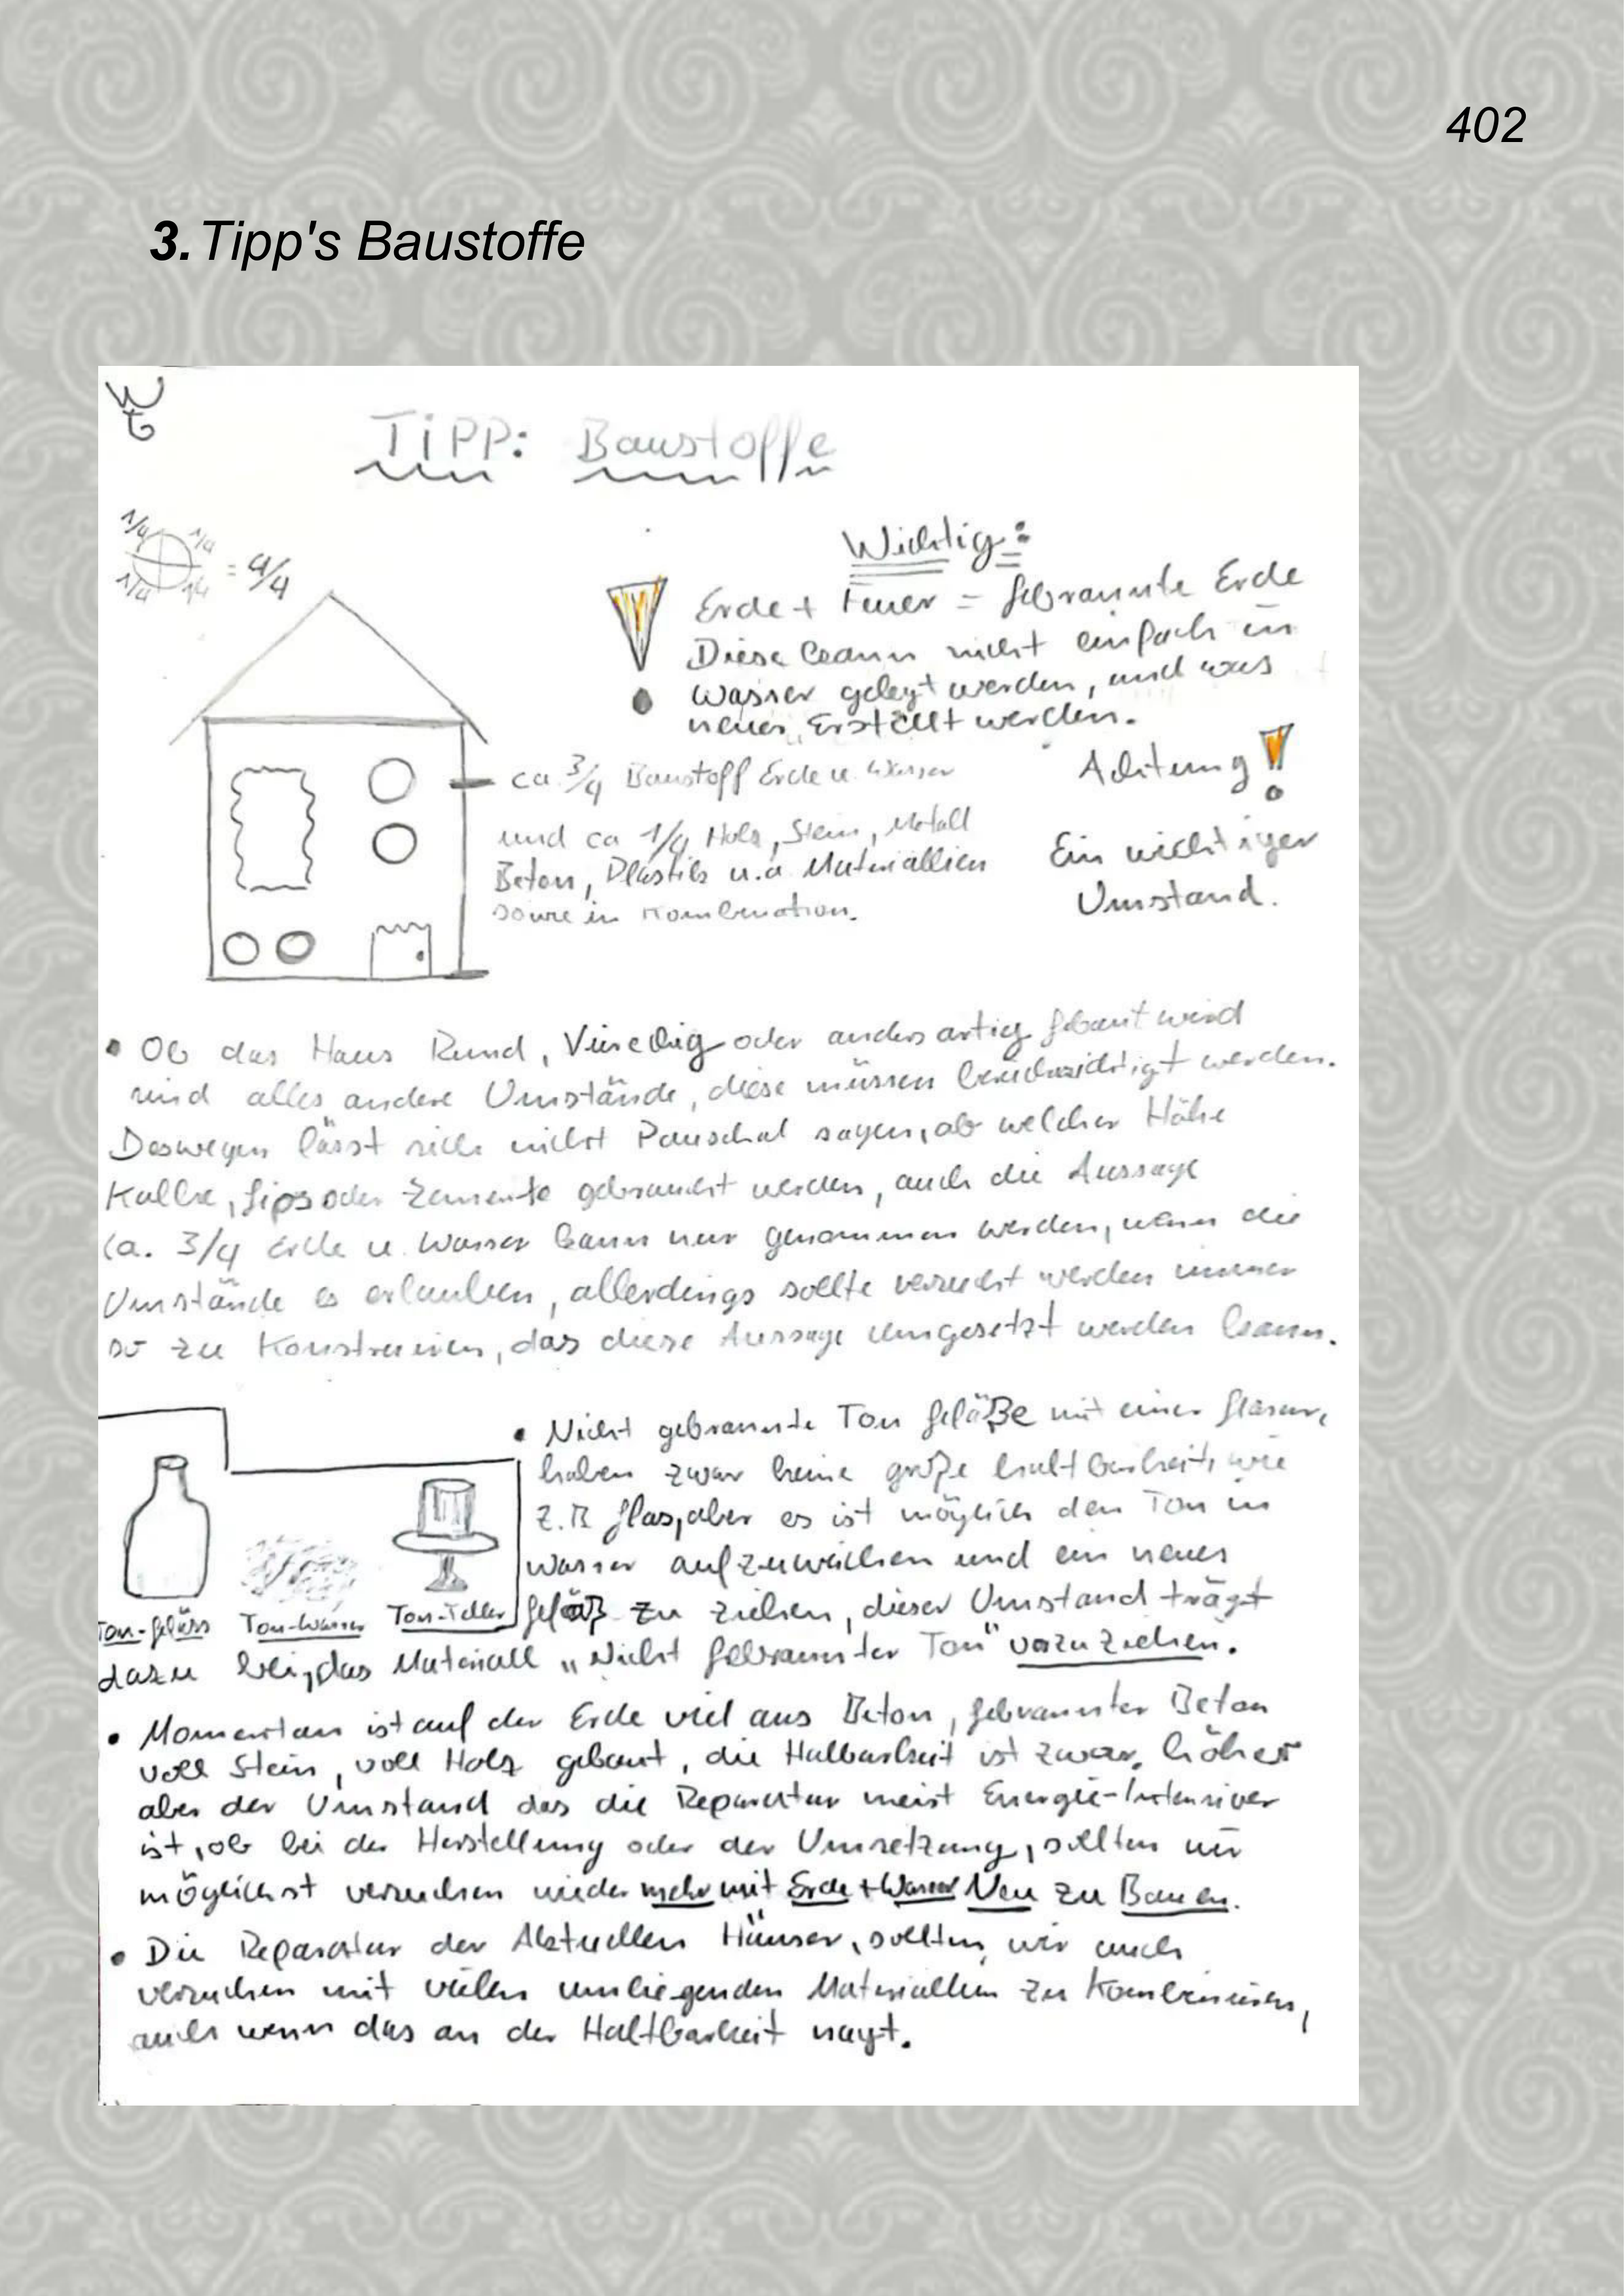 402
3. Tipp's Baustoffe
TiPP: Baustoffe
1/4 1/4
1/4 1/4 = 4/4
Wichtig:
Erde + Feuer = Gebrannte Erde
Diese kann nicht einfach in
Wasser gelegt werden, und was
neues, Erstellt werden.
ca. 3/4 Baustoff Erde u. Wasser
und ca 1/4 Holz, Stein, Metall
Beton, Plastik u.a. Materiallien
sowie in Kombination.
Achtung!
Ein wichtiger
Umstand.
• Ob das Haus Rund, Viereckig oder anders artig Gebaut wird
sind alles andere Umstände, diese müssen werden.
Deswegen lässt sich nicht Pauschal sagen, ab welcher Höhe
Kalke, Gips oder Zemente gebraucht werden, auch die Aussage
ca. 3/4 Erde u. Wasser kann nur genommen werden, wenn die
Umstände es erlauben, allerdings sollte versucht werden immer
so zu Konstruieren, das diese Aussage Umgesetzt werden kann.
• Nicht gebrannte Ton Gefäße mit einer Glasur,
haben zwar keine große haltbarkeit, wie
z.B Glas, aber es ist möglich den Ton in
Wasser aufzuweichen und ein neues
Gefäß zu ziehen, dieser Umstand trägt
dazu bei, das Materiall „Nicht Gebrannter Ton" vorzuziehen.
Ton-Gefäss Ton-Wasser Ton-Teller
• Momentan ist auf der Erde viel aus Beton, Gebrannter Beton
voll Stein, voll Holz gebaut, die Haltbarkeit ist zwar höher
aber der Umstand das die Reparatur meist Energie-Intensiver
ist, ob bei der Herstellung oder der Umsetzung, sollten wir
möglichst versuchen wieder mehr mit Erde + Wasser Neu zu Bauen.
• Die Reparatur der Aktuellen Häuser, sollten wir auch
versuchen mit vielen umliegenden Materiallien zu Kombinieren,
auch wenn das an der Haltbarkeit nagt.